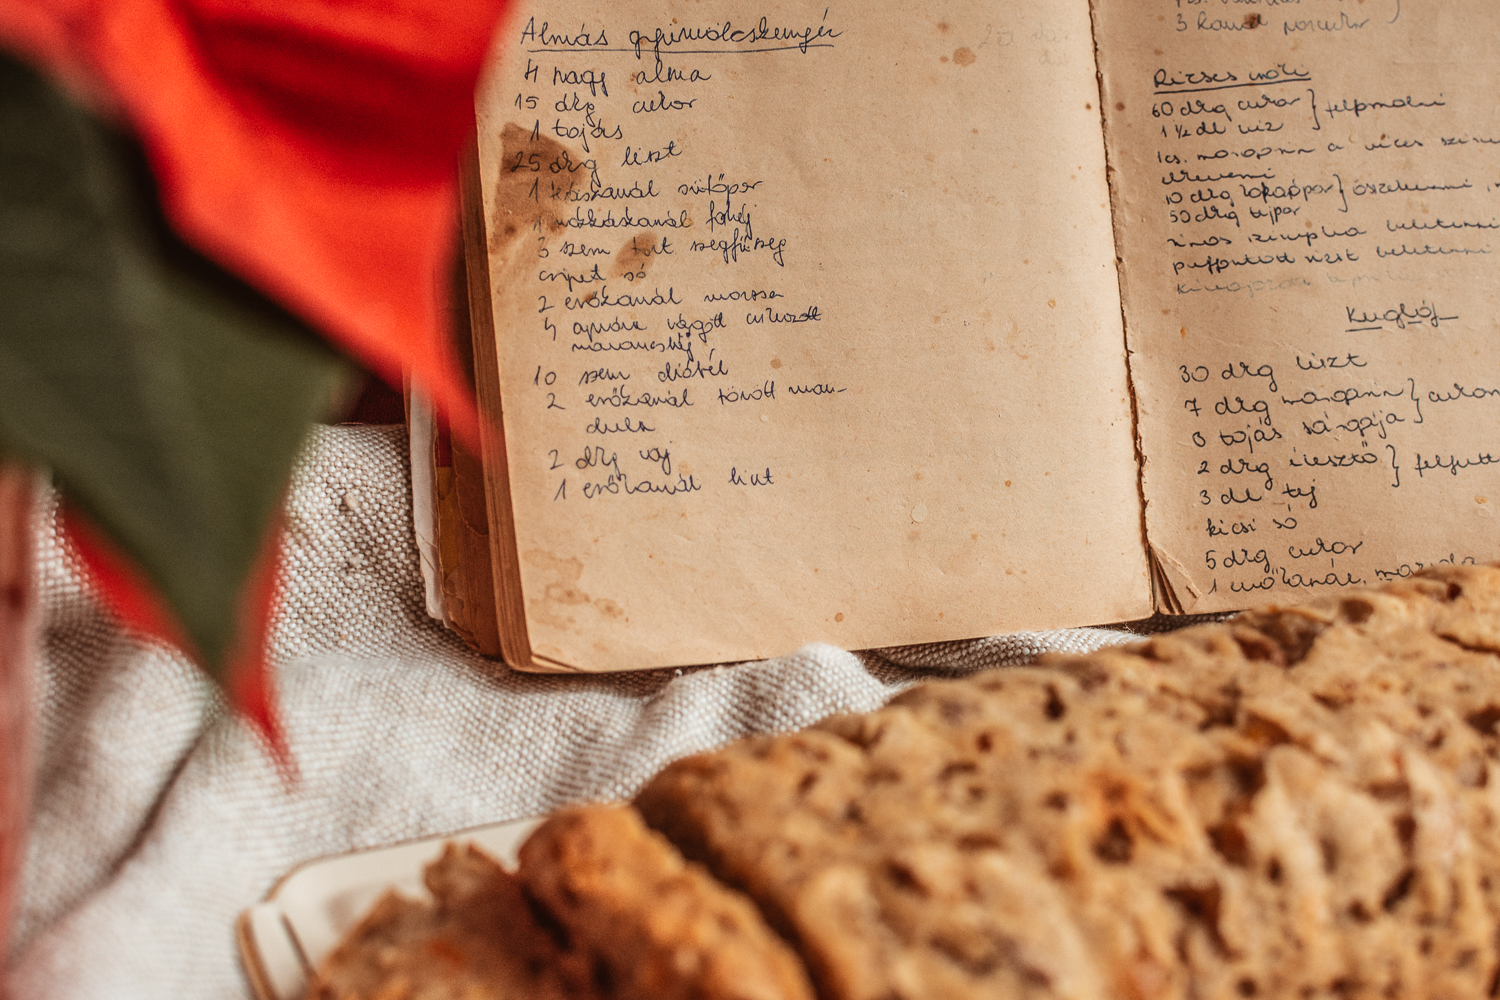 Almás gyümölcskenyér
4 nagy alma
15 dkg cukor
1 tojás
25 dkg liszt
1 káskanál sütőpor
1 mokkáskanál fahéj
3 szem tört szegfűszeg
csipet só
2 evőkanál mazsola
4 apróra vágott cukrozott
narancshéj
10 szem dióbél
2 evőkanál törött man-
dula
2 dkg vaj
1 evőkanál liszt
3 kanál porcukor
Rizses
60 dkg cukor } felfőzni
1 ½ dl víz
1 cs. margarin a vizes
elkeverni
10 dkg } összekeverni,
50 dkg tejpor
puffasztott rizst beletenni
Kuglóf
30 dkg liszt
7 dkg margarin }
3 tojás sárgája
2 dkg élesztő } felfutt
3 dl tej
kicsi só
5 dkg cukor
1 evőkanál